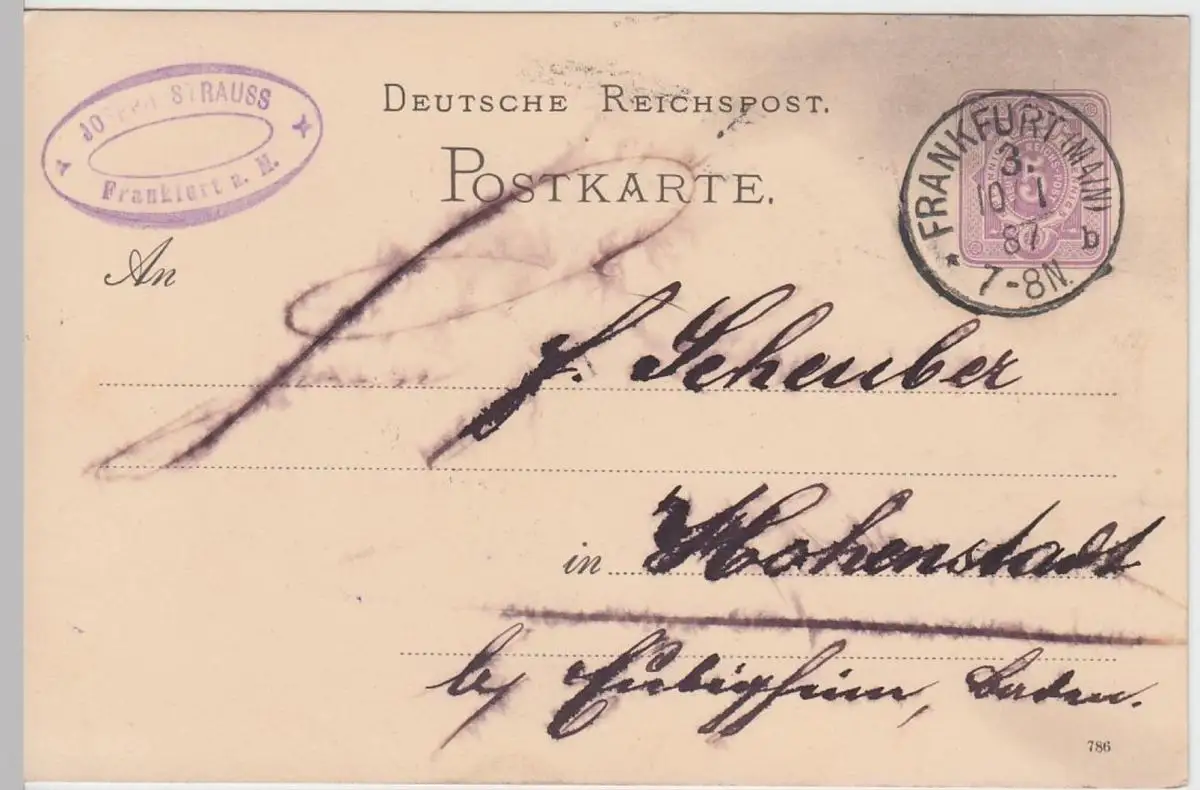 JOSEPH STRAUSS
Frankfurt a. M.
DEUTSCHE REICHSPOST.
POSTKARTE.
FRANKFURT (MAIN)
3.
10 1
87 b
* 7-8N.
5
An
f. Scheuber
in Hohenstadt
by Eubigheim, Baden.
786